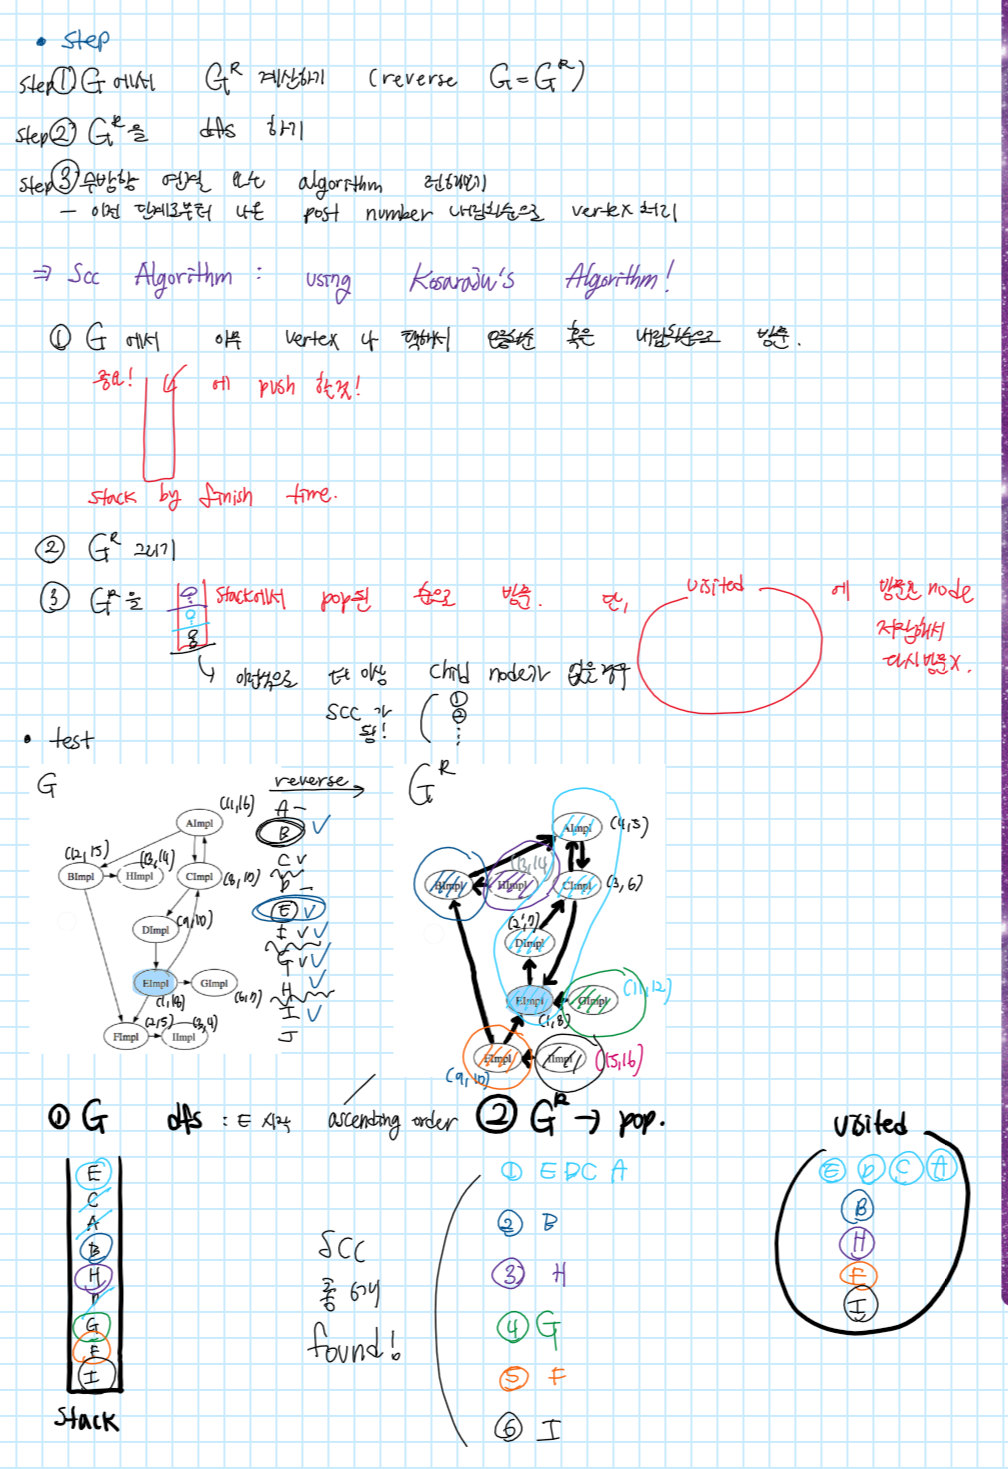 • step
step① G 에서 G^R 계산하기 (reverse G = G^R)
step② G^R을 dfs 하기
step③ 무방향 연결 요소 algorithm
- 이전 단계로부터 나온 post number 내림차순으로 vertex 처리
⇒ Scc Algorithm : using Kosaraju's Algorithm!
① G 에서 아무 vertex 나 택해서 오름차순 혹은 내림차순으로 방문.
중요! 에 push 할것!
stack by finish time.
② G^R 그리기
③ G^R을 stack에서 pop된 순으로 방문. 단, visited 에 방문한 node
저장해서
다시 방문 X.
더 이상 child node가 없을 경우
SCC 가 ①
됨! ②
• test
G reverse G^R
A
B
C
D
E
F
G
H
I
J
(11,16)
AImpl
(12,15) (13,14)
BImpl HImpl CImpl
(9,10)
DImpl
EImpl GImpl
(6,7)
(2,5) (3,4)
FImpl IImpl
AImpl (4,5)
(13,14)
BImpl HImpl CImpl (3,6)
(2,7)
DImpl
EImpl GImpl (11,12)
(1,8)
FImpl IImpl (15,16)
(9,10)
① G dfs : E 시작 ascending order
② G^R → pop.
visited
E
C
A
B
H
D
G
F
I
stack
SCC
총 6개
found!
① E D C A
② B
③ H
④ G
⑤ F
⑥ I
E D C A
B
H
F
I